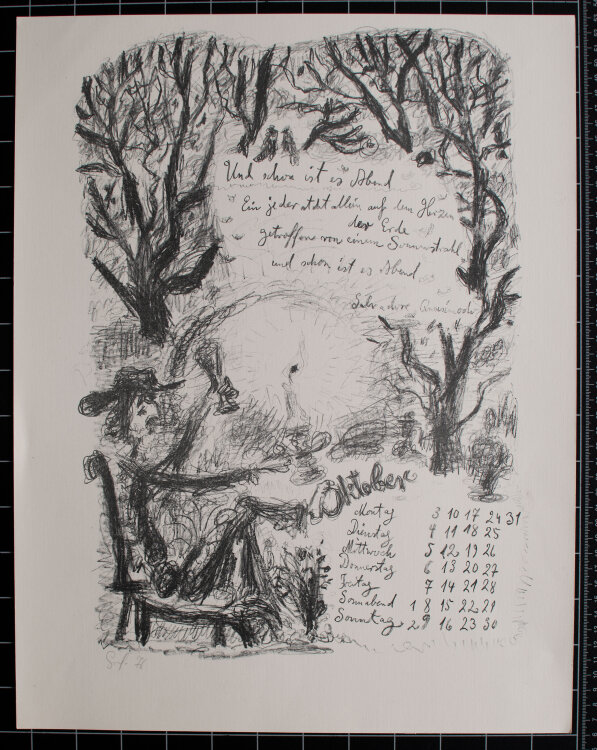 Und schon ist es Abend
Ein jeder steht allein auf dem Herzen
der Erde
getroffen von einem Sonnenstrahl
und schon ist es Abend
Salvatore Quasimodo
Oktober
Montag 3 10 17 24 31
Dienstag 4 11 18 25
Mittwoch 5 12 19 26
Donnerstag 6 13 20 27
Freitag 7 14 21 28
Sonnabend 1 8 15 22 29
Sonntag 2 9 16 23 30